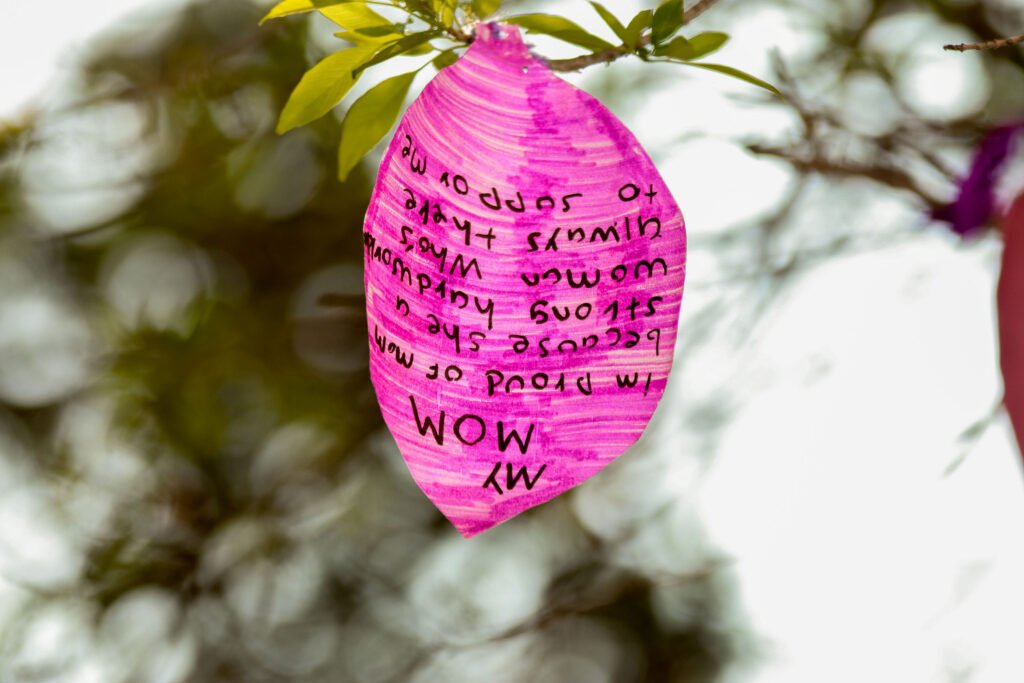 MY
MOM
Im proud of mom
because she a
strong hardworkin
women who's
always there
to suppor me